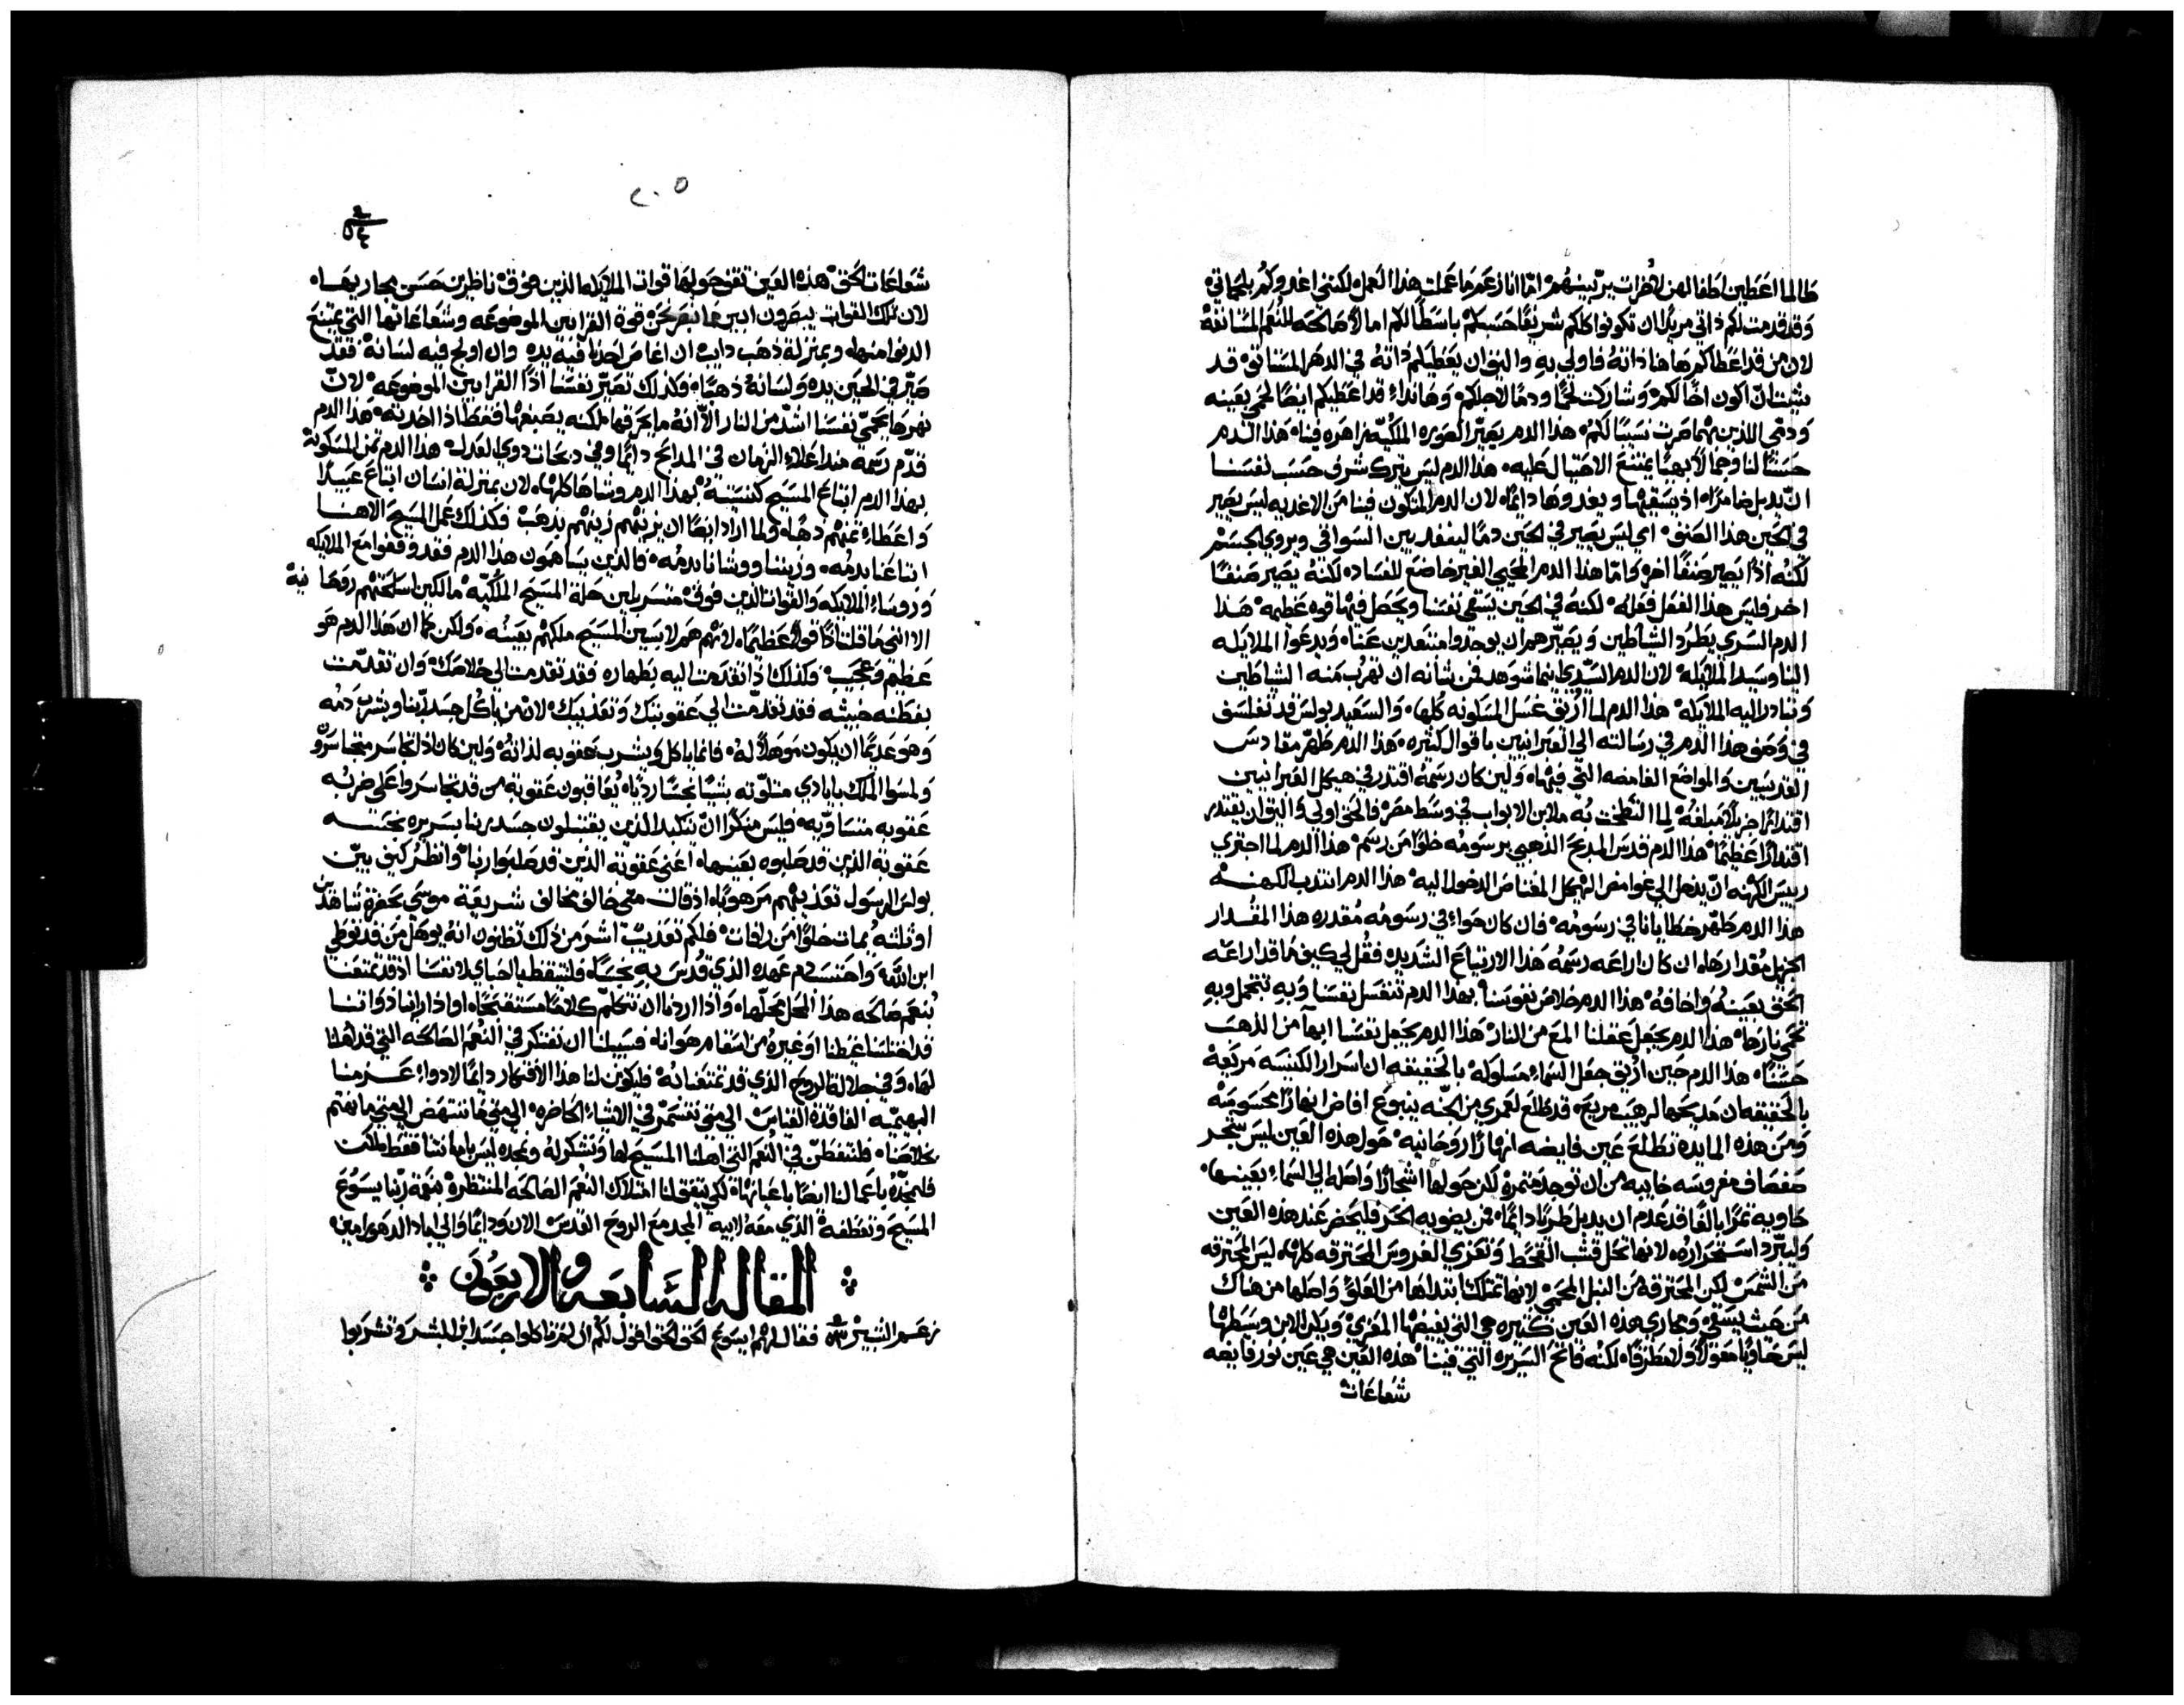 طالما اعطين اطفالهن لاخرات يربينهم اما انا زعم ما عملت هذا العمل لكنني اغدوكم بلحماتي
وقد قدمت لكم ذاتي مريدًا ان تكونوا كلكم شريفًا حسبكم باسطًا لكم امالاً صالحه للنعم المستانفه
لان من قد اعطاكم هاهنا ذاته فاولي به واليق ان يعطيكم ذاته في الدهر المستاتي قد
شيت ان اكون اخًا لكم وشاركت لحمًا ودمًا لاجلكم وهانداء قد اعطيكم ايضًا لحمي بعينه
ودمي اللذين بهما صرت نسيبًا لكم هذا الدم يصير الصوره الملكيه زاهره فينا هذا الدم
حسنًا لنا وجمالاً بهيًا يمتنع الاحتيال عليه هذا الدم ليس يترك شرف حسب نفسنا
ان يذبل ضامرًا اذ يسقيها ويغدوها دايمًا لان الدم المتكون فينا من الاغديه ليس يصير
في الحين هذا الصنف اي ليس يصير في الحين دمًا لينفد بين السواقي ويروي الجسم
لكنه اذًا يصير صنفًا اخر واما هذا الدم المحيي الغير خاضع للفساد لكنه يصير صنفًا
اخر فليس هذا الفعل فعله لكنه في الحين يسقي نفسنا ويجعل فيها قوه عظيمه هذا
الدم السري يطرد الشياطين ويصيرهم ان يوجدوا مبتعدين عنا ويدعوا الملايكه
الينا وسيد الملايكه لان الدم السيدي اينما شوهد فمن شانه ان تهرب منه الشياطين
وتبادر اليه الملايكه هذا الدم لما اريق غسل المسكونه كلها والسعيد بولس قد تفلسف
في وصف هذا الدم في رسالته الي العبرانيين باقوال كثيره هذا الدم طهر مقادس
القديسين والمواضع الغامضه التي فيهما ولين كان رسمه اقتدر في هيكل العبرانيين
اقتدارًا جزيلاً مبلغه لما التطخت به ملابن الابواب في وسط مصر فالحق اولي واليق ان يقتدر
اقتدارًا عظيمًا هذا الدم قدس المدبح الذهبي برسومه خلوًا من رسم هذا الدم لما اجتري
رييس الكهنه ان يدخل الي غوامض الهيكل المغتاص الدخول اليه هذا الدم انتدب الكهنه
هذا الدم طهر خطايانا في رسومه فان كان حواء في رسومه مقدره هذا المقدار
الجزيل مقدارها ان كان اراعه رسمه هذا الارتياع الشديد فقل لي كيف ما قد اراعه
الحق بعينه واخافه هذا الدم خلاص نفوسنا بهذا الدم تنغسل نفسنا وبه تتجمل وبه
تحمي نارها هذا الدم يجعل عقلنا المع من النار هذا الدم يجعل نفسنا ابهآ من الذهب
حسنًا هذا الدم حين اريق جعل السماء مسلوكه بالحقيقه ان اسرار الكنيسه مريعه
بالحقيقه ان مدبحها لرهيب مريع قد طلع لعمري من الجنه ينبوع افاض انهارًا محسوسه
ومن هذه المايده تطلع عين فايضه انهارًا روحانيه حول هذه العين ليس شجر
صفصاف مغروسه خايبه من ان توجد مثمره لكن حولها اشجارًا واصله الي السماء بعينها
حاويه ثمرًا يالغًا قد عدم ان يدبل طريًا دايمًا فمن يضويه الحر فليحضر عند هذه العين
وليبرد استحراره لانها تحل قشب القحط وتعزي الغروس المحترقه كلها ليس المحترقه
من الشمس لكن المحترقه من النبل المحمي لانها تمتلك ابتداها من العلو واصلها من هناك
من حيث يسقي ومجاري هذه العين كثيره هي التي يفيضها المعزي ويكون الابن وسطها
ليس حاويًا معولاً ولا مطرقًا لكنه فاتح السريره التي فينا هذه العين هي عين نور فايضه
شعاعات
٢٠٥
شعاعات الحق هذه العين تقف حولها قوات الملايكه الذين فوق ناظرين حسن مجاريها
لان تلك القوات يبصرون ابين مما نبصر نحن قوة القرابين الموضوعه وشعاعاتها التي يمتنع
الدنو منها وبمنزلة ذهب دايب ان اغاض احدنا فيه يده وان اولج فيه لسانه فقد
صير في الحين يده ولسانه ذهبًا فكذلك تصير نفسنا اذًا القرابين الموضوعه لان
نهرها يحمي نفسنا اشد من النار الا انه ما يحرقها لكنه يصبغها فقط اذا اخدته هذا الدم
قدم رسمه منذ اعلاء الزمان في المدابح دايمًا وفي دبحات دوي العدل هذا الدم ثمن المسكونة
بهذا الدم ابتاع المسيح كنيسته بهذا الدم وشاها كلها لان بمنزلة انسان ابتاع عبيدًا
واعطاء ثمنهم دهبًا ولما اراد ايضًا ان يزينهم زينهم بذهب فكذلك عمل المسيح الاهنا
ابتاعنا بدمه وزيننا ووشانا بدمه والذين يساهمون هذا الدم فقد وقفوا مع الملايكه
وروساء الملايكه والقوات الذين فوق متسربلين حلة المسيح الملكيه مالكين اسلحتهم روحا نيه
الا انني ما قلت اذًا قولاً عظيمًا لانهم هم لابسين المسيح ملكهم بعينه ولكن كما ان هذا الدم هو
عظيم وعجيب فكذلك اذا تقدمت اليه بطهاره فقد تقدمت الي خلاصك وان تقدمت
بفطنه خبيثه فقد تقدمت الي عقوبتك وتعذيبك لان من ياكل جسد ربنا ويشرب دمه
وهو عديمًا ان يكون موهلاً له فانما ياكل ويشرب عقوبه لذاته ولين كان اذا تجاسر متجاسرون
ولمسوا الملك بايادي متلوثه شيًا نجسًا رديًا يعاقبون عقوبة من قد تجاسروا علي ضربه
عقوبه متساويه فليس منكرًا ان تتكبد الذين يقتبلون جسد ربنا بسريره نجسه
عقوبة الذين قد صلبوه بعينها اعني عقوبة الذين قد صلبوا ربنا وانظر كيف بين
بولس الرسول تعذيبهم مرهوبًا اذ قال متي خالف مخالف شريعة موسي بحضره شاهدين
او ثلثه يمات خلوًا من رافات فلكم تعذيب اشر من ذلك تظنون انه يوهل من قد توطي
ابن الله واحتسب دم عهده الذي قدس به نجسًا فلنتفطن يا احباي لانفسنا اذ قد تمتعنا
بنعم صالحه هذا المحل محلها واذا اردنا ان نتكلم كلامًا مستقبحًا او اذا راينا ذواتنا
قد اختلسنا غيظنا او غيره من اسقام هوانا فسبيلنا ان نفتكر في النعم الصالحه التي قد اهلنا
لها وفي جلالة الروح الذي قد تمتعنا به فليكون لنا هذا الافتكار دايمًا لادواء عزمنا
البهيميه الفاقدة القياس الي متي نتسمر في الاشياء الحاضره الي متي ما ننتهض الي متي ما نهتم
بخلاصنا فلنتفطن في النعم التي اهلنا المسيح لها ونشكر له ونمجده ليس بامانتنا فقط لكن
فلنمجده باعمالنا ايضًا باعيانها لكي يتفق لنا امتلاك النعم الصالحه المنتظره بنعمة ربنا يسوع
المسيح وتعطفه الذي معه لابيه المجد مع الروح القدس الان ودايمًا والي اباد الدهور امين
المقاله السابعه والاربعون
زعم البشير فقال لهم ايسوع الحق الحق اقول لكم ان لم تاكلوا جسد ابن البشر وتشربوا